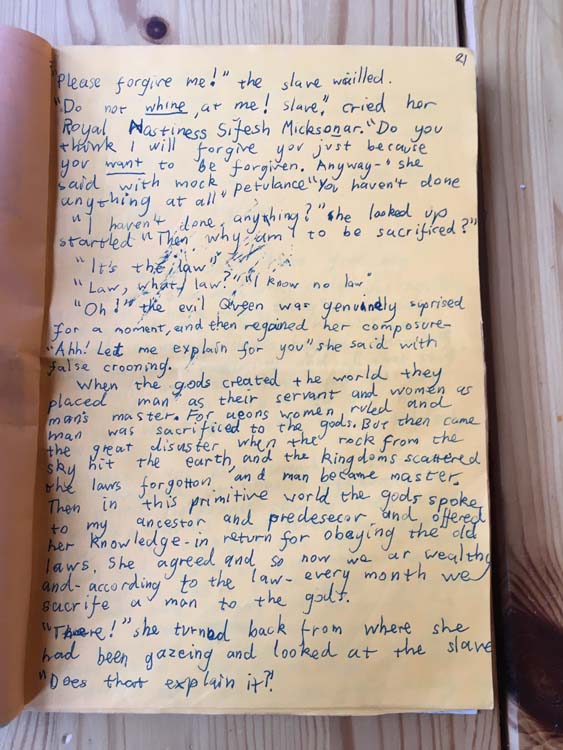 21
"Please forgive me!" the slave wailled.
"Do not whine, at me! slave", cried her
Royal Nastiness Sifesh Micksonar. "Do you
think I will forgive you just because
you want to be forgiven. Anyway-" she
said with mock petulance "You haven't done
anything at all"
"I haven't done, anything?" she looked up
startled "Then why am I to be sacrificed?"
"It's the law"
"Law, what law?" "I know no law"
"Oh!" the evil Queen was genuinely suprised
for a moment, and then regained her composure-
"Ahh! Let me explain for you" she said with
false crooning.
When the gods created the world they
placed man as their servant and women as
man's master. For aeons women ruled and
man was sacrificed to the gods. But then came
the great disaster when the rock from the
sky hit the earth, and the kingdoms scattered
the laws forgotton, and man became master.
Then in this primitive world the gods spoke
to my ancestor and predesecor and offered
her knowledge-in return for obaying the old
laws. She agreed and so now we ar wealthy
and-according to the law-every month we
sacrife a man to the gods.
"There!" she turned back from where she
had been gazeing and looked at the slave
"Does that explain it?"